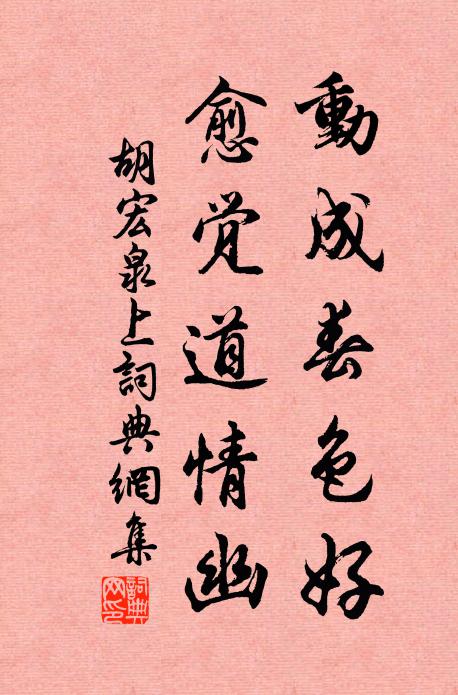 動成春色好
愈觉道情幽
胡宏泉上詞典網集
詞典网印